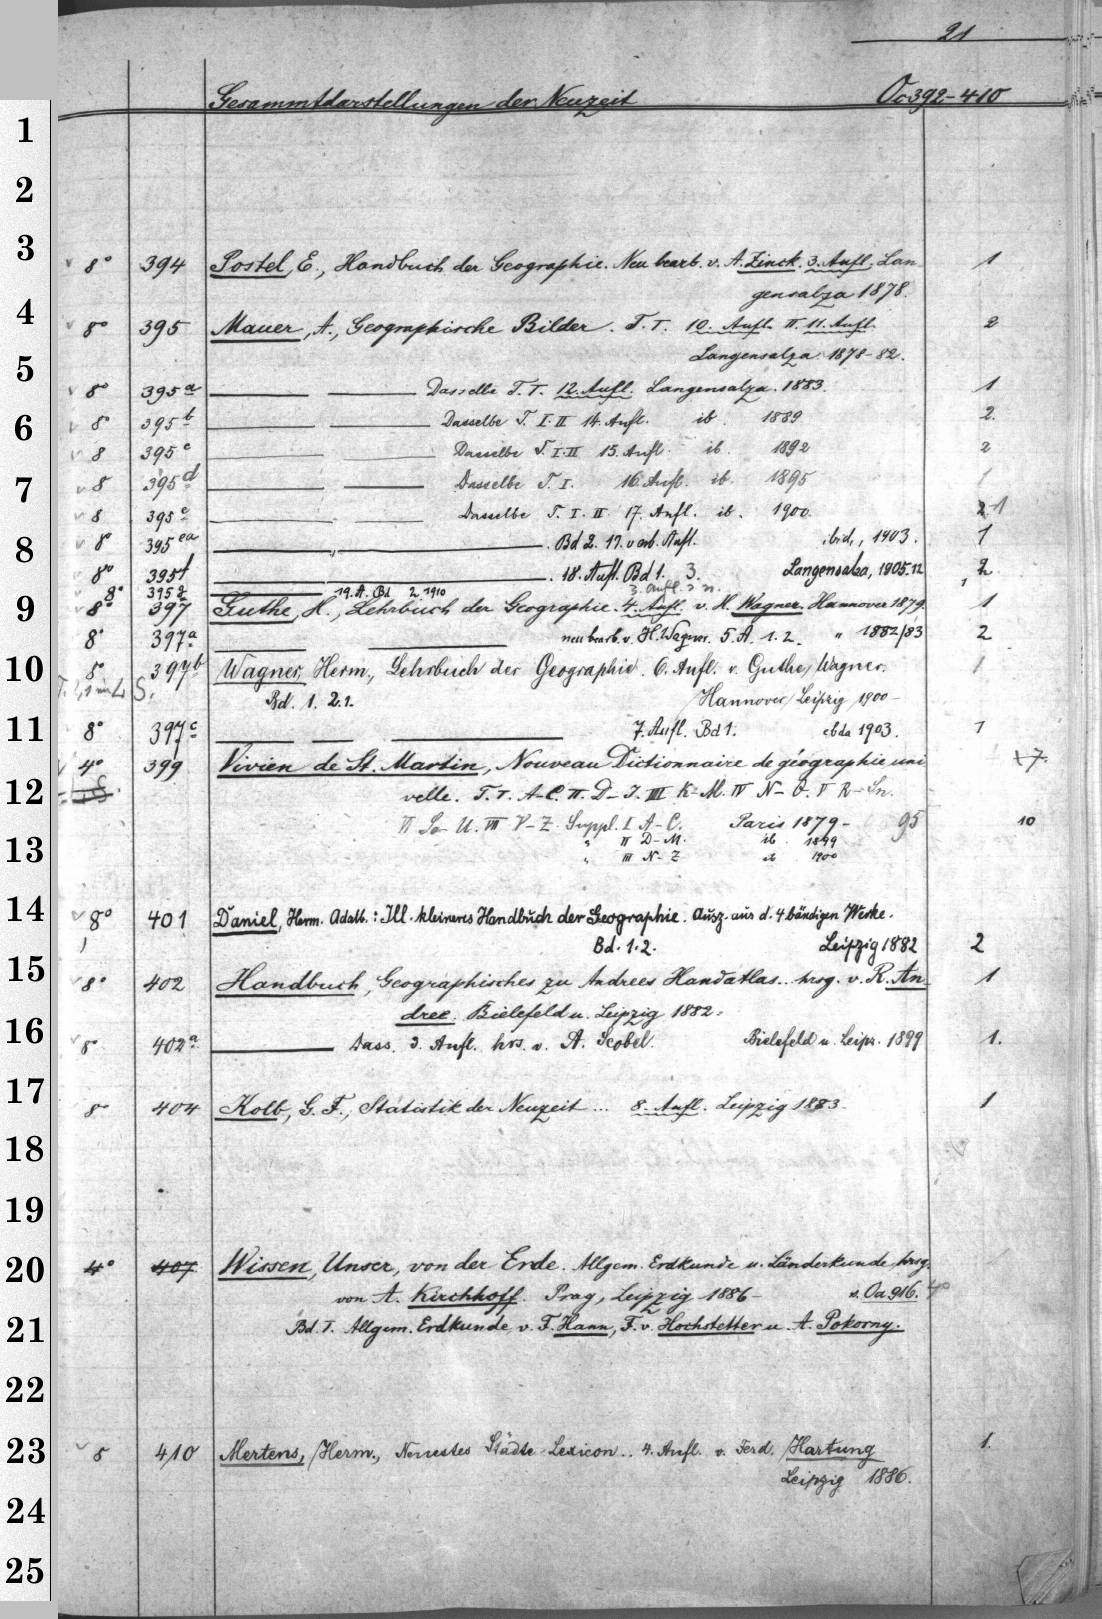 21
Gesammtdarstellungen der Neuzeit Oa 392-410
1
2
3
8° 394 Postel, E., Handbuch der Geographie. Neu bearb. v. A. Zinck. 3. Aufl. Lan- 1
gensalza 1878.
4
8° 395 Mauer, A., Geographische Bilder. T. I. 10. Aufl. II. 11. Aufl. 2
Langensalza 1878-82.
5
8° 395a Dasselbe T. I. 12. Aufl. Langensalza. 1883. 1
6
8° 395b Dasselbe T. I. II 14. Aufl. ib. 1889 2.
8 395c Dasselbe T. I-II 15. Aufl. ib. 1892 2
7
8 395d Dasselbe T. I. 16. Aufl. ib. 1895 1
8 395e Dasselbe T. I. II 17. Aufl. ib. 1900. 2 1
8
8° 395ea . Bd 2. 17. verb. Aufl. ibid., 1903. 1
8° 395f . 18. Aufl. Bd 1. 3. Langensalza, 1905.12 2
8° 395g 19. A. Bd 2. 1910
9
8° 397 Guthe, H., Lehrbuch der Geographie. 4. Aufl. v. H. Wagner. Hannover 1879. 1
8° 397a neu bearb. v. H. Wagner. 5. A. 1. 2. " 1882/83 2
10
8° 397b Wagner, Herm., Lehrbuch der Geographie. 6. Aufl. v. Guthe, Wagner. 1
Bd. 1. 2.1. Hannover, Leipzig 1900-
11
8° 397c 7. Aufl. Bd 1. ebda 1903. 1
4° 399 Vivien de St. Martin, Nouveau Dictionnaire de géographie uni 7.
12
velle. T. I. A-C. II. D-J. III K-M. IV N-Q. V R-Sn.
VI So-U. VII V-Z. Suppl. I A-C. Paris 1879-95 10
" II D-M. ib. 1899
13
" III N-Z ib 1900
14
8° 401 Daniel, Herm. Adalb.: Ill. kleineres Handbuch der Geographie. Ausz. aus d. 4 bändigen Werke.
Bd. 1. 2. Leipzig 1882 2
15
8° 402 Handbuch, Geographisches zu Andrees Handatlas.. hrsg. v. R. An- 1
dree. Bielefeld u. Leipzig 1882.
16
8° 402a Dass. 3. Aufl. hrs. v. A. Scobel. Bielefeld u. Leipz. 1899 1.
17
8 404 Kolb, G. F., Statistik der Neuzeit... 8. Aufl. Leipzig 1883. 1
18
19
20
4° 407 Wissen, Unser, von der Erde. Allgem. Erdkunde u. Länderkunde, hrsg.
von A. Kirchhoff. Prag, Leipzig 1886- s. Oa 916. 4°
21
Bd. I. Allgem. Erdkunde v. F. Hann, F. v. Hochstetter u. A. Pokorny.
22
23
8 410 Mertens, Herm., Neuestes Städte-Lexicon.. 4. Aufl. v. Ferd. Hartung 1.
Leipzig 1886.
24
25